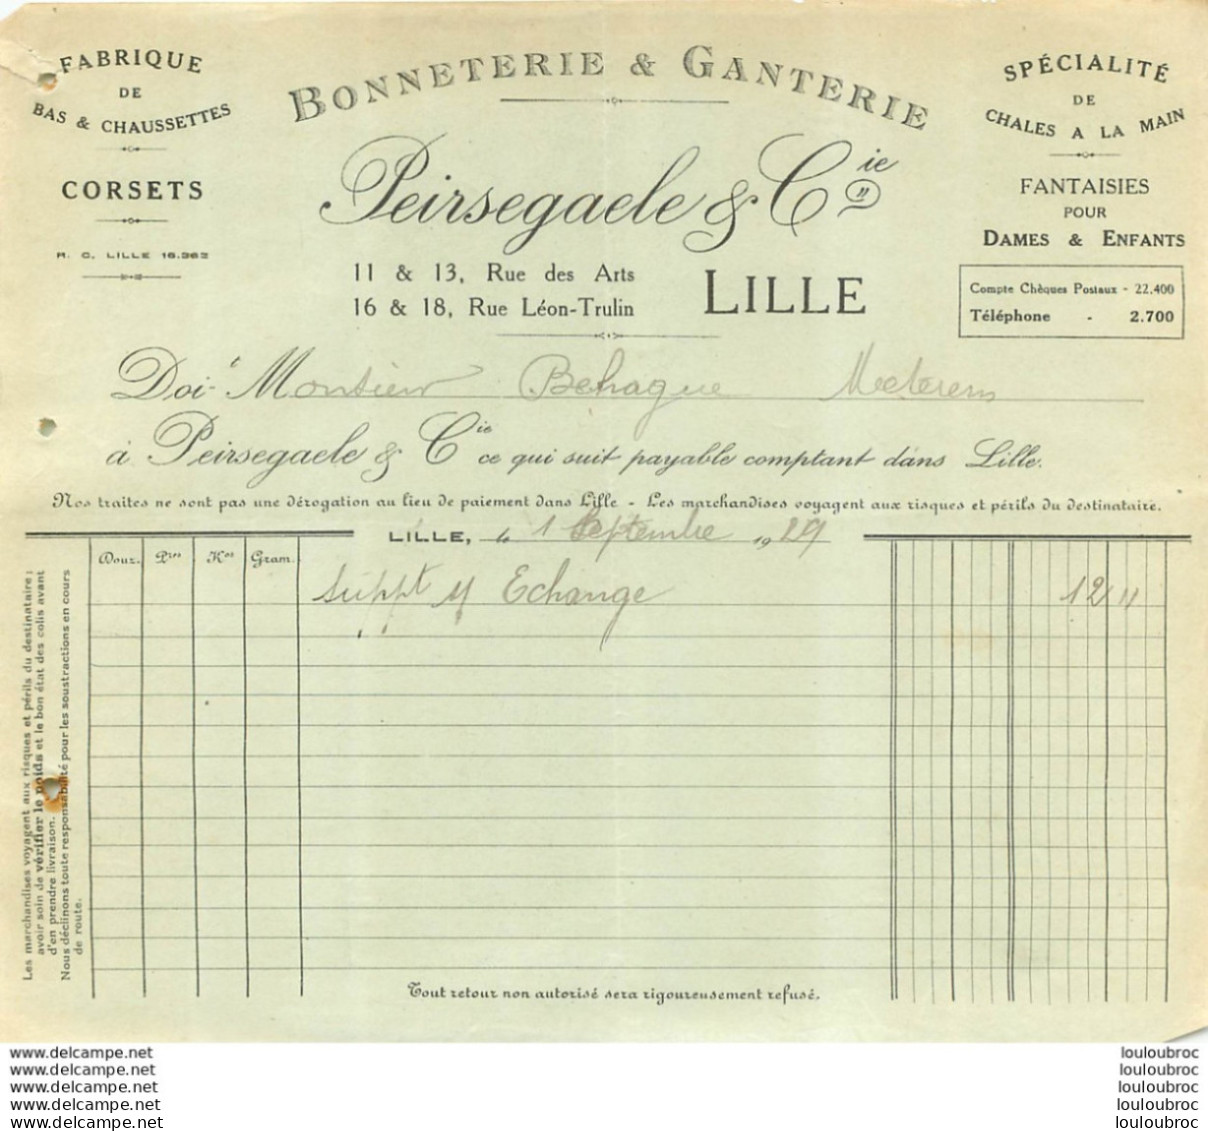 FABRIQUE
DE
BAS & CHAUSSETTES
CORSETS
R. C. LILLE 16.362
BONNETERIE & GANTERIE
Peirsegaele & Cie
11 & 13, Rue des Arts
16 & 18, Rue Léon-Trulin
LILLE
SPÉCIALITÉ
DE
CHALES A LA MAIN
FANTAISIES
POUR
DAMES & ENFANTS
Compte Chèques Postaux - 22.400
Téléphone - 2.700
Doit Monsieur Behague Meteren
à Peirsegaele & Cie ce qui suit payable comptant dans Lille.
Nos traites ne sont pas une dérogation au lieu de paiement dans Lille - Les marchandises voyagent aux risques et périls du destinataire.
LILLE, le 1 Septembre 1929
Douz. Pres Kos Gram.
Suppt s/ Echange 12 "
Les marchandises voyagent aux risques et périls du destinataire ;
avoir soin de vérifier le poids et le bon état des colis avant
d'en prendre livraison.
Nous déclinons toute responsabilité pour les soustractions en cours
de route.
Tout retour non autorisé sera rigoureusement refusé.
www.delcampe.net
www.delcampe.net
www.delcampe.net
www.delcampe.net
www.delcampe.net
louloubroc
louloubroc
louloubroc
louloubroc
louloubroc